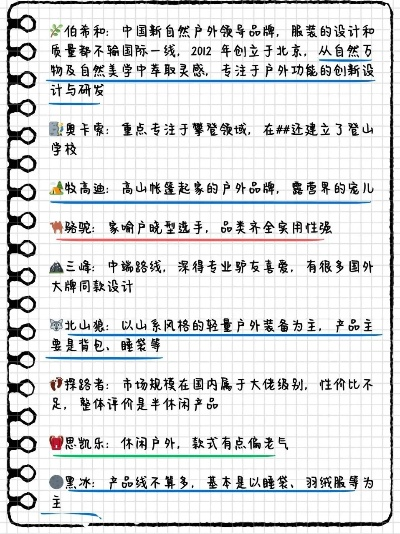 伯希和：中国新自然户外领导品牌，服装的设计和
质量都不输国际一线，2012 年创立于北京，从自然万
物及自然美学中萃取灵感，专注于户外功能的创新设
计与研发
奥卡索：重点专注于攀登领域，在##还建立了登山
学校
牧高迪：高山帐篷起家的户外品牌，露营界的宠儿
骆驼：家喻户晓型选手，品类齐全实用性强
三峰：中端路线，深得专业驴友喜爱，有很多国外
大牌同款设计
北山狼：以山系风格的轻量户外装备为主，产品主
要是背包、睡袋等
探路者：市场规模在国内属于大佬级别，性价比不
足，整体评价是半休闲产品
思凯乐：休闲户外，款式有点偏老气
黑冰：产品线不算多，基本是以睡袋、羽绒服等为
主